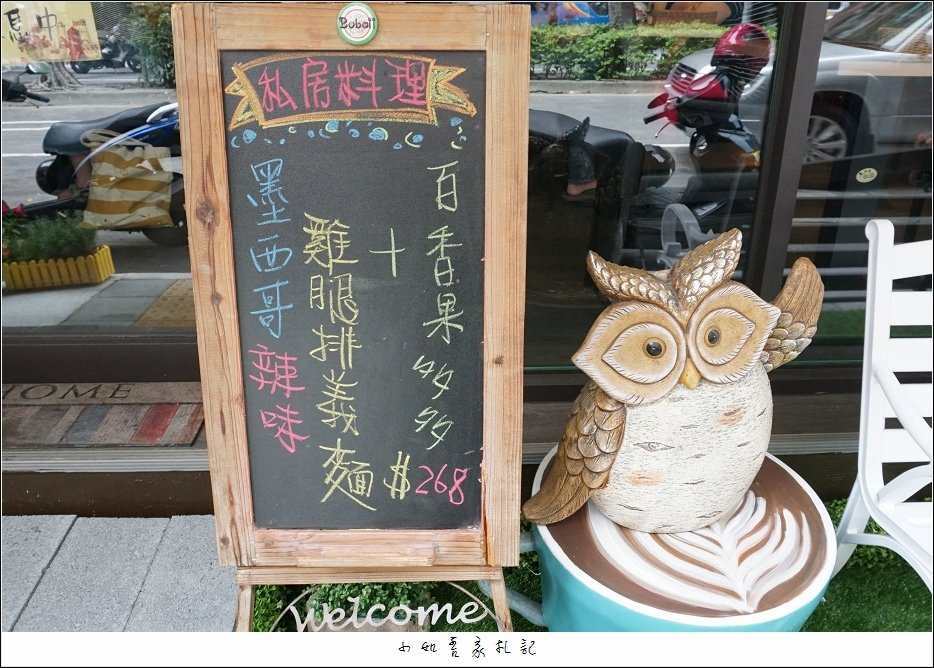 Boboi
私房料理
墨西哥辣味
雞腿排義麵
+
百香果多多
$268
HOME
welcome
小如吾家札記